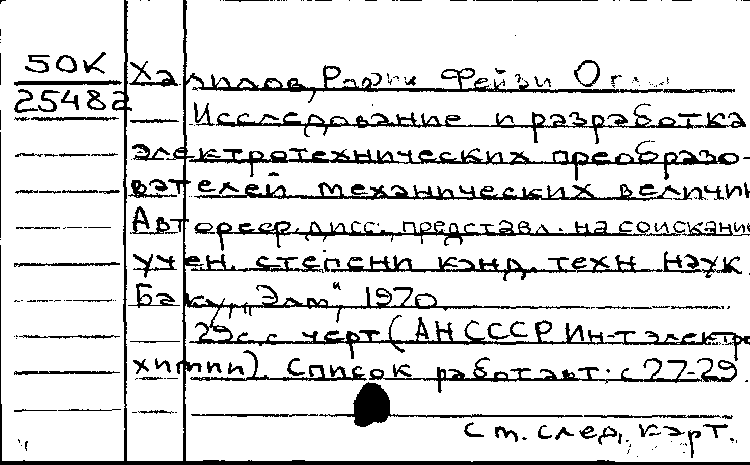 50К
25482
Халилов, Рафик Фейзи Оглы
Исследование и разработка
электротехнических преобразо-
вателей механических величин
Автореф. дисс. представл. на соискание
учен. степени канд. техн наук
Баку, "Элм", 1970.
29с.с черт (АН СССР Ин-т электро
химии). Список работ авт: с 27-29.
См. след. карт.